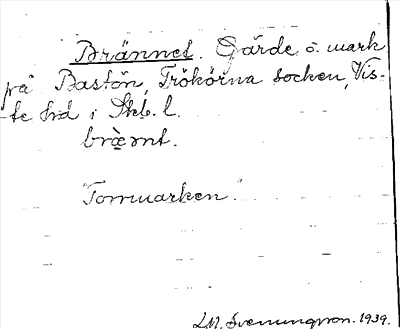 Brännet. Gärde o. mark
på Bastön, Trökörna socken, Vis-
te hd i Skb. l.
bræ̀nt.
"Tornmarken."
L.M. Svenungsson. 1939.